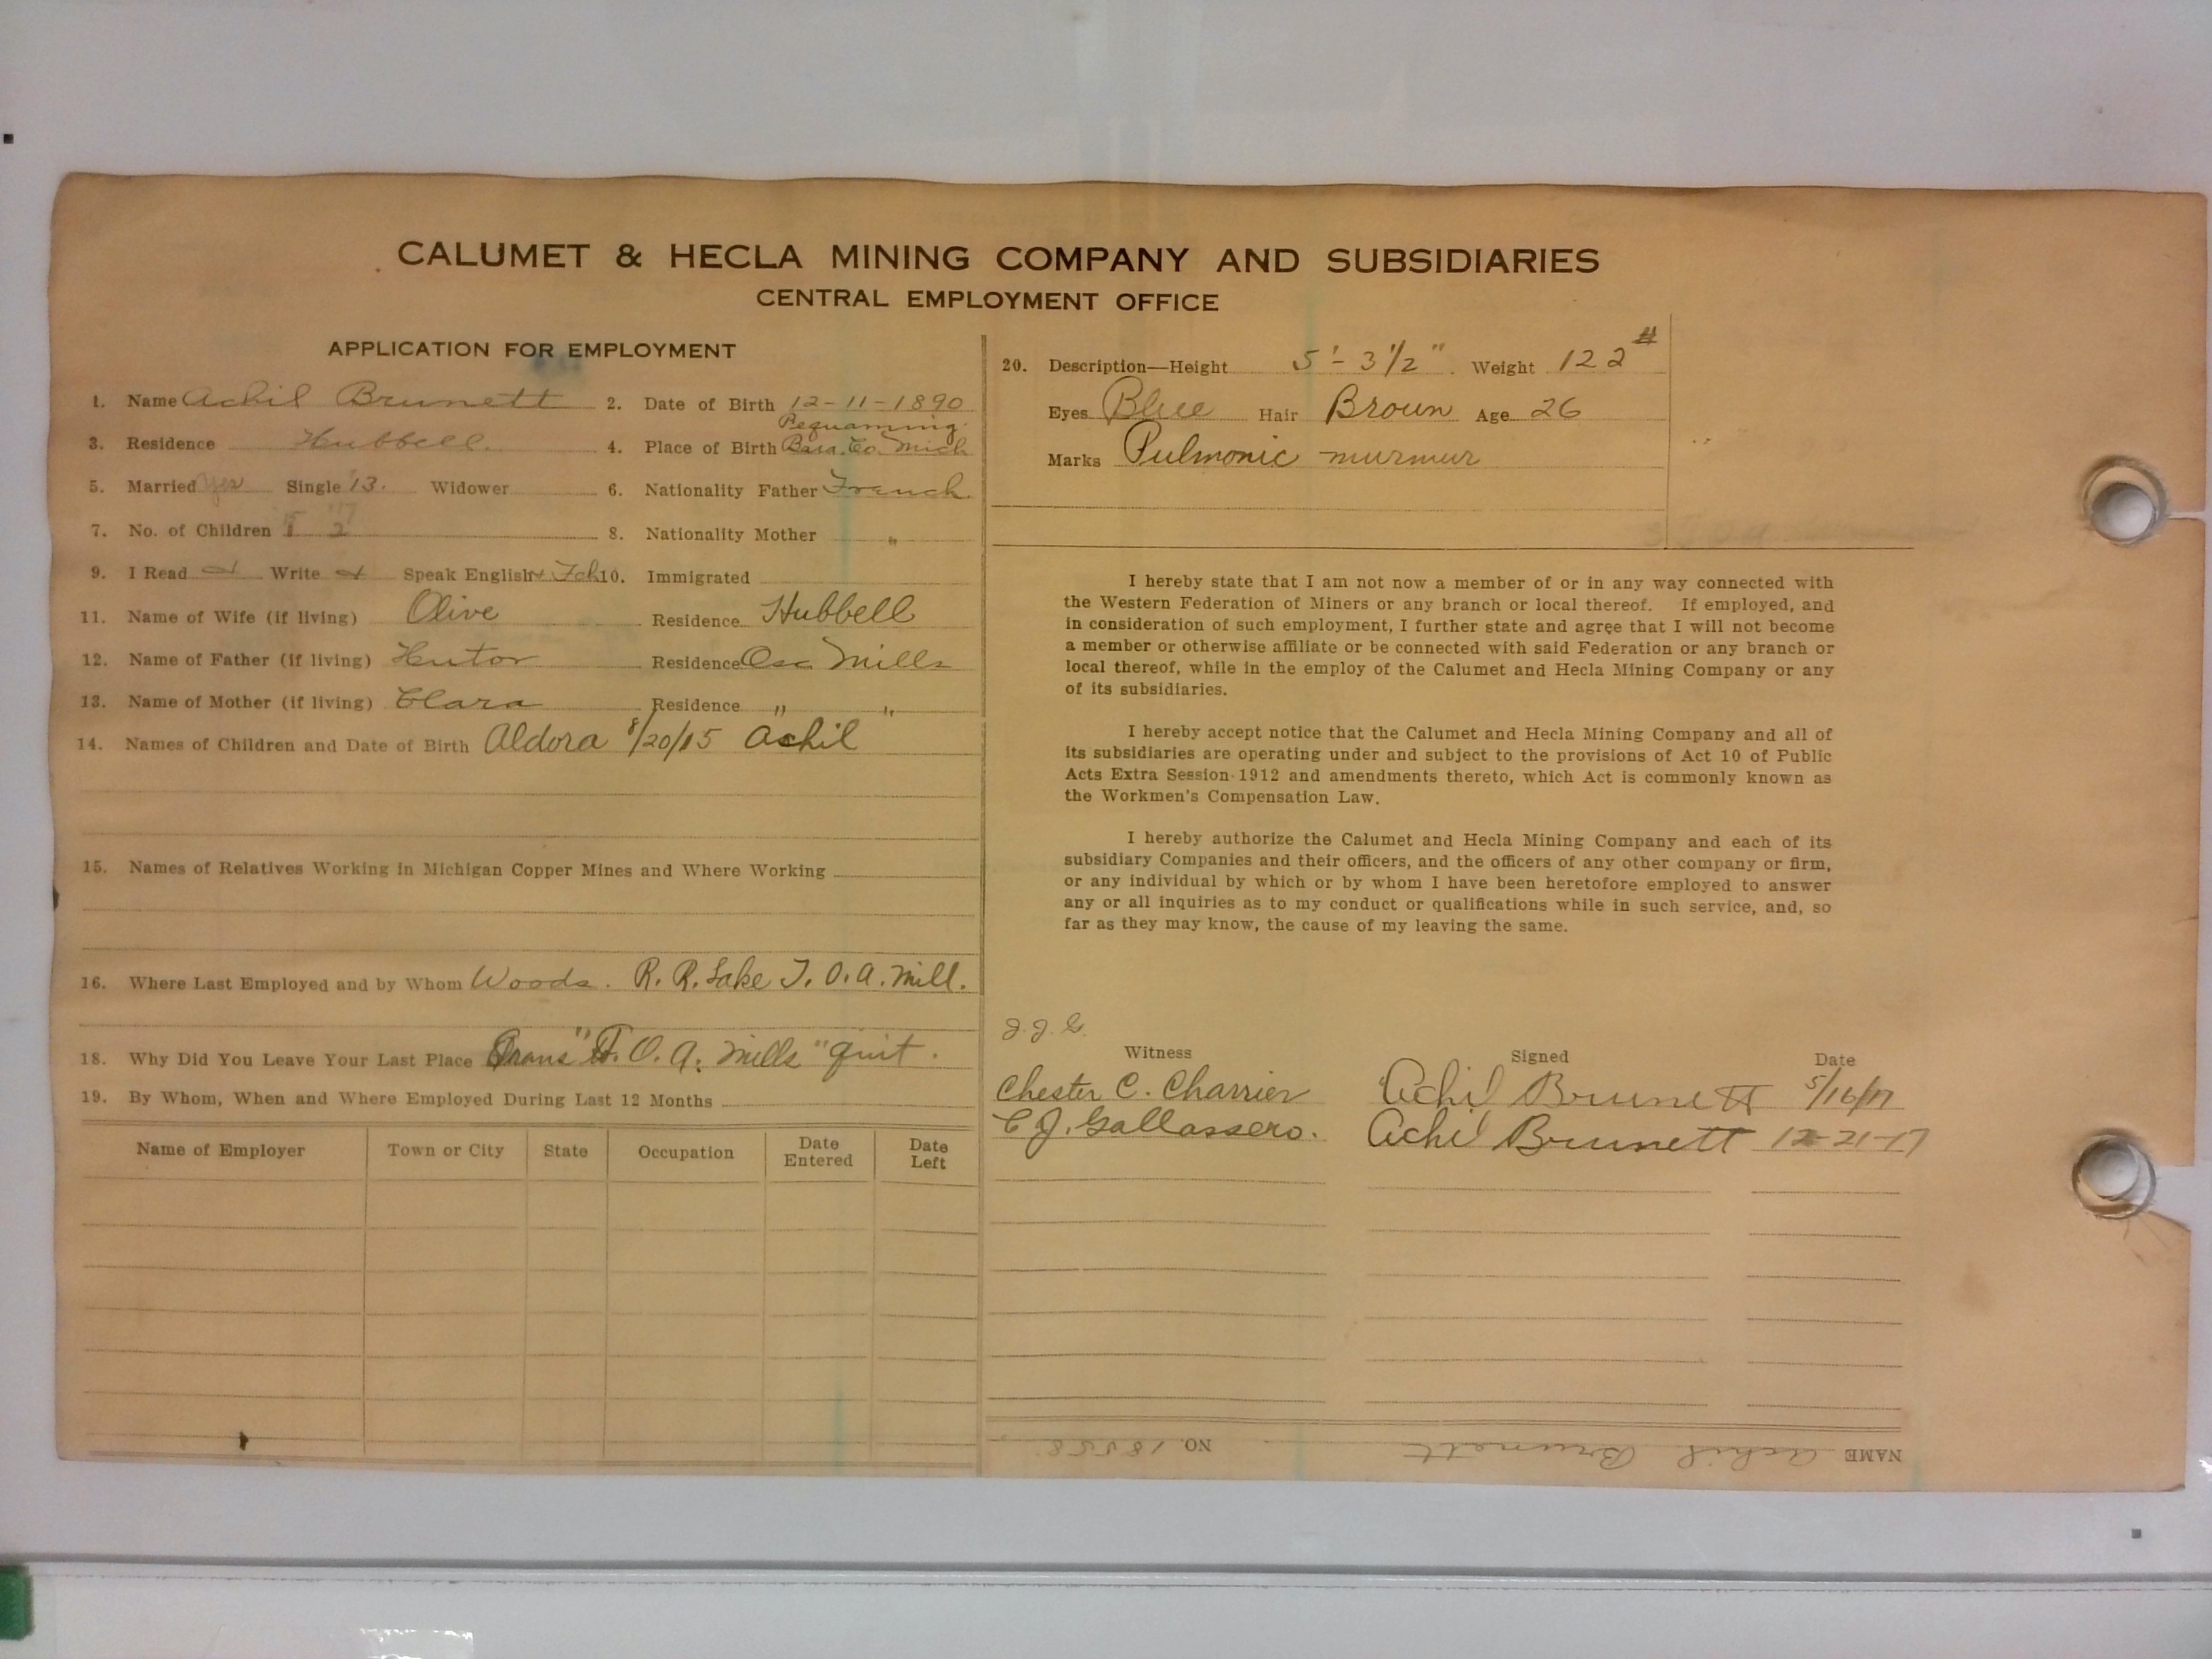 CALUMET & HECLA MINING COMPANY AND SUBSIDIARIES
CENTRAL EMPLOYMENT OFFICE
APPLICATION FOR EMPLOYMENT
1. Name Achil Brunett 2. Date of Birth 12-11-1890
Pequaming
3. Residence Hubbell. 4. Place of Birth Bara. Co. Mich
5. Married Yes Single '13. Widower 6. Nationality Father French
7. No. of Children 2 '17 8. Nationality Mother "
9. I Read Write Speak English 10. Immigrated
11. Name of Wife (if living) Olive Residence Hubbell
12. Name of Father (if living) Residence Osc Mills
13. Name of Mother (if living) Clara Residence " "
14. Names of Children and Date of Birth Aldora 8/20/15 Achil
15. Names of Relatives Working in Michigan Copper Mines and Where Working
16. Where Last Employed and by Whom Woods. R. R. Lake T. O. A. Mill.
18. Why Did You Leave Your Last Place Trans" T. O. A. Mills "quit.
19. By Whom, When and Where Employed During Last 12 Months
Name of Employer Town or City State Occupation Date Entered Date Left
20. Description—Height 5'-3 1/2". Weight 122#
Eyes Blue Hair Brown Age 26
Marks Pulmonic murmur
I hereby state that I am not now a member of or in any way connected with
the Western Federation of Miners or any branch or local thereof. If employed, and
in consideration of such employment, I further state and agree that I will not become
a member or otherwise affiliate or be connected with said Federation or any branch or
local thereof, while in the employ of the Calumet and Hecla Mining Company or any
of its subsidiaries.
I hereby accept notice that the Calumet and Hecla Mining Company and all of
its subsidiaries are operating under and subject to the provisions of Act 10 of Public
Acts Extra Session 1912 and amendments thereto, which Act is commonly known as
the Workmen's Compensation Law.
I hereby authorize the Calumet and Hecla Mining Company and each of its
subsidiary Companies and their officers, and the officers of any other company or firm,
or any individual by which or by whom I have been heretofore employed to answer
any or all inquiries as to my conduct or qualifications while in such service, and, so
far as they may know, the cause of my leaving the same.
J. J. G.
Witness Signed Date
Chester C. Charrier Achil Brunett 5/16/17
C J. Gallassero. Achil Brunett 12-21-17
NAME Achil Brunett NO. 18558